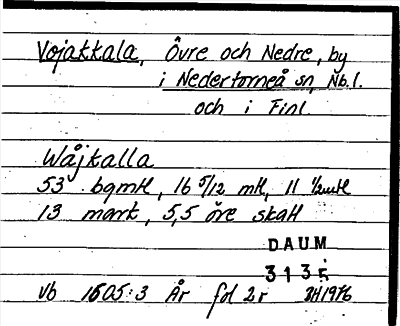 Vojakkala, Övre och Nedre, by
i Nedertorneå sn, Nb.l.
och i Finl.
Wåjkalla
53 bgmtl, 16 5/12 mtl, 11 1/2 mtl
13 mark, 5,5 öre skatt
DAUM
3135
Vb 1605:3 År fol 2r JH1976